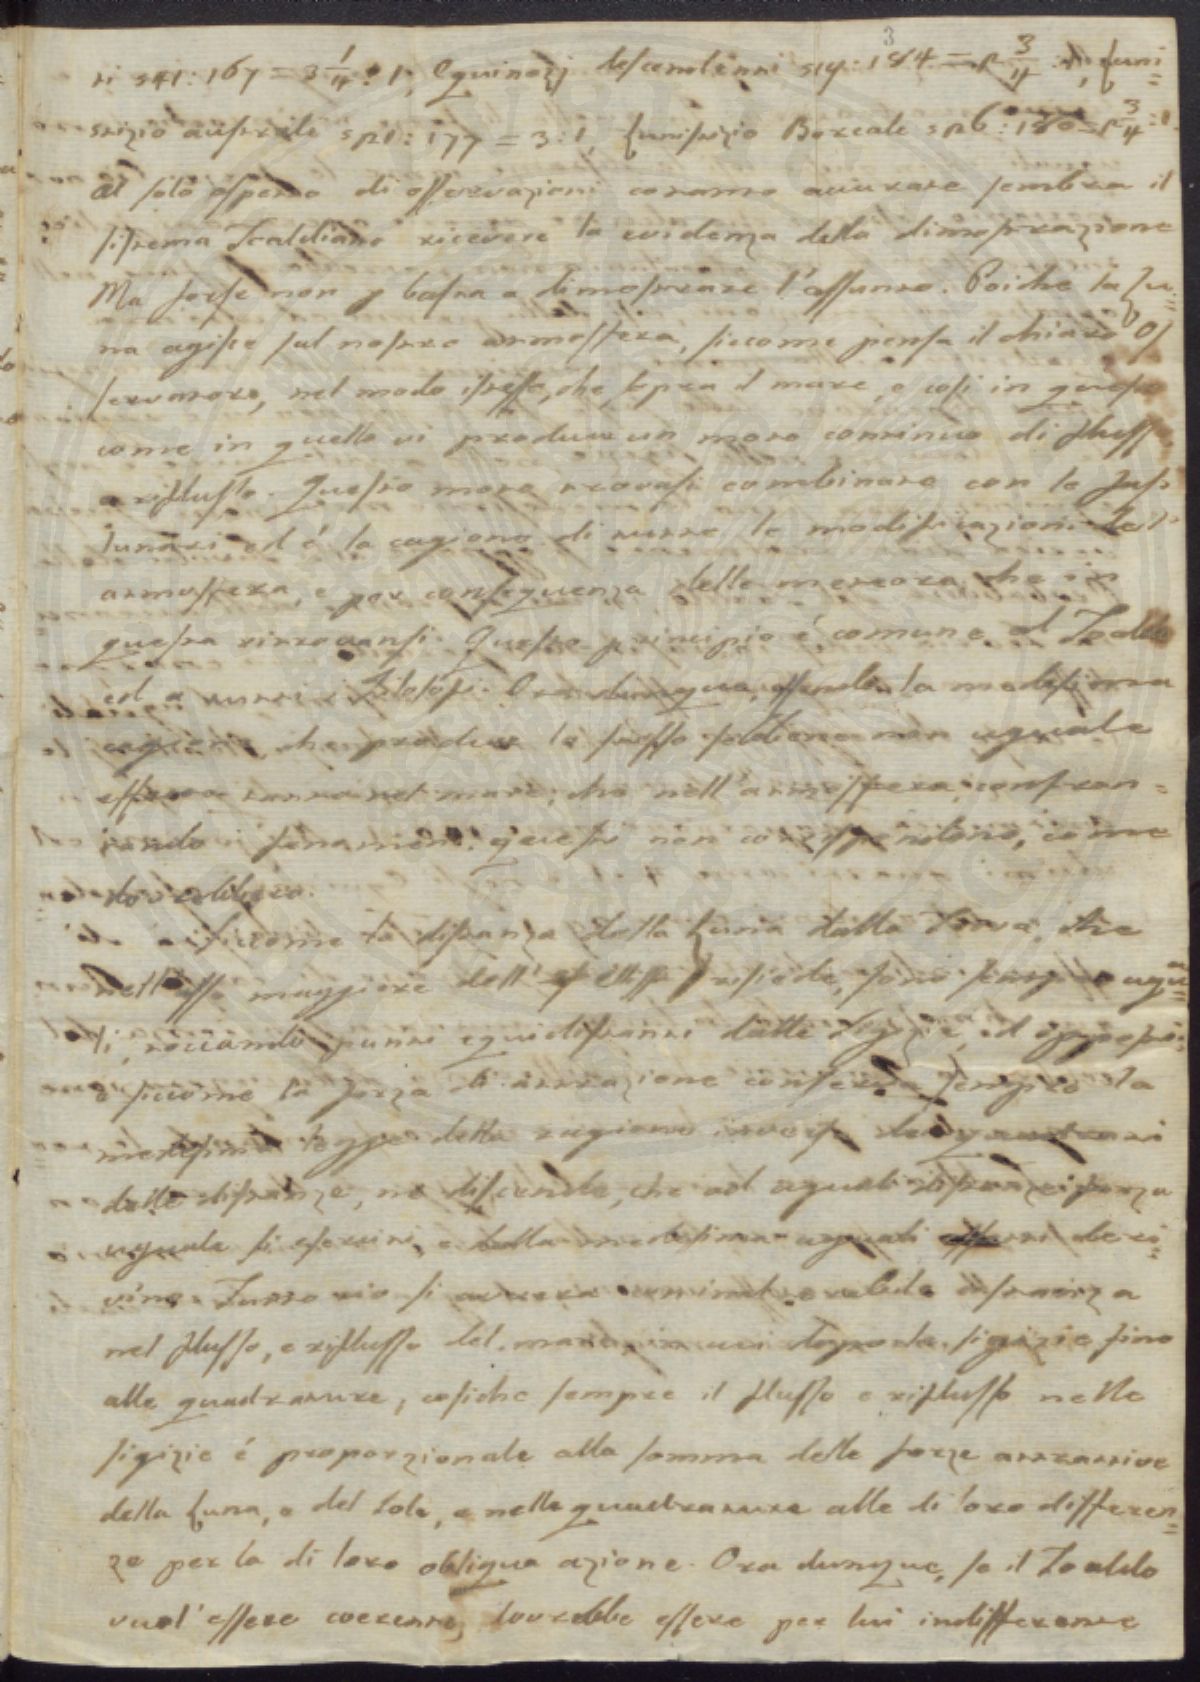 3
ti 541: 167 = 3 1/4 : 1, Equinozj descendenti 517: 184 = 2 3/4 : 1, Luni=
stizio australe 521: 177 = 3 : 1, Lunistizio Boreale 526: 180 = 2 3/4 : 1
Al solo aspetto di osservazioni cotanto accurate sembra il
sistema Toaldiano ricevere la evidenza della dimostrazione
Ma forse non basta a dimostrare l'assunto. Poiche la Lu=
na agisce sul nostro atmosfera, siccome pensa il chiaro Os
servatore, nel modo istesso, che sopra il mare, e così in questo
come in quello vi produce un moto continuo di fluss
e riflusso. Questo moto trovasi combinare con le fasi
lunari ed é la cagione di tutte le modificazioni del
atmosfera, e per conseguenza delle meteore che in
questa ritrovansi. Questo principio é comune al Toaldo
ed a tutti i Filosofi. Ora dunque essendo la medesima
cagione, che produce lo stesso non uguale
effetto tanto nel mare, che nell'atmosfera, confron=
tando i fenomeni questi non corrispondono, come
dovrebbero.
siccome la distanza della Luna dalla Terra, che
nell'asse maggiore dell' elisse risiede, sono sempre ugua=
li, toccando punti equidistanti dalle Sigizie, ed opposti
e siccome la forza di attrazione conserva sempre la
medesima legge della ragione inversa de quadrati
delle distanze, ne discende, che ad uguali distanze forza
uguale si eserciti, e dalla medesima uguali effetti deri=
vino. Tutto ciò si avvera
nel flusso, e riflusso del mare, in cui dopo la sigizie fino
alle quadrature, cosiche sempre il flusso e riflusso nelle
sigizie é proporzionale alla somma delle forze attrattive
della Luna, e del Sole, e nelle quadrature alle di loro differen=
ze per la di loro obliqua azione. Ora dunque, se il Toaldo
vuol' essere coerente, dovrebbe essere per lui indifferente